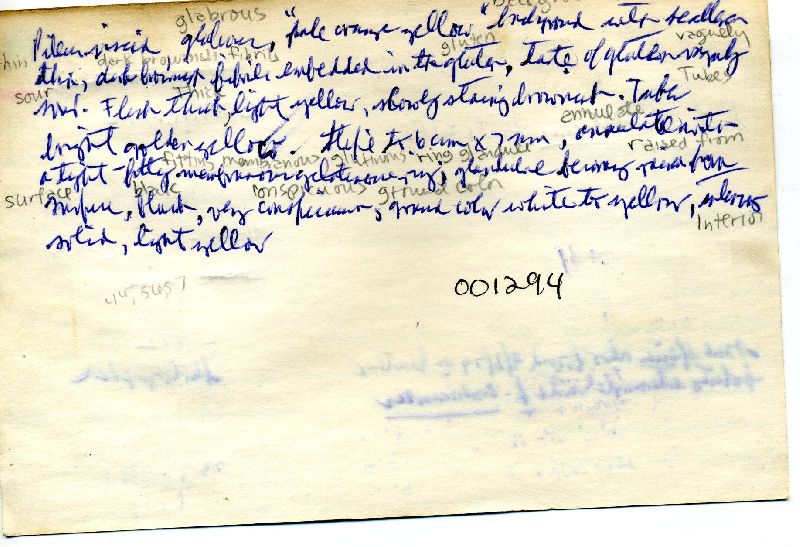 glabrous background
Pileus viscid glabrous, "pale orange yellow" background with scattered
gluten vaguely
thin dark brownish fibrils
thin, dark brownish fibrils embedded in the gluten, taste of gluten vaguely
sour Thick Tubes
sour. Flesh thick, light yellow, slowly staining brownish. Tubes
annulate
bright golden yellow. Stipe to 6 cm x 7 mm, annulate with
fitting membranous glutinous ring glandulae raised from
a tight-fitting membranous gelatinous ring; glandulae being raised from
surface black conspicuous ground color
surface, black, very conspicuous, ground color white to yellow, interior
Interior
solid, light yellow
001294
44,565?